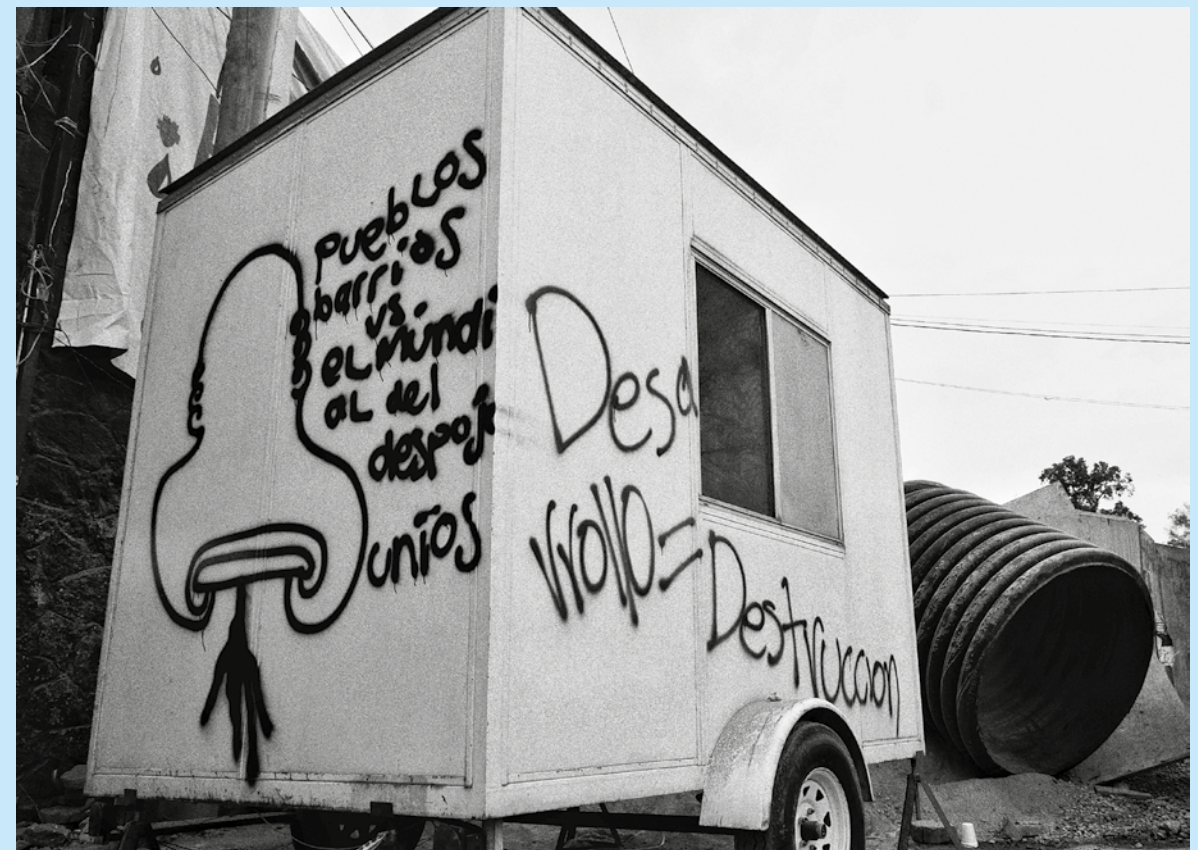 pueblos
barrios
vs.
el mundi
al del
despojo
uníos
Desa
rrollo=
Destruccion